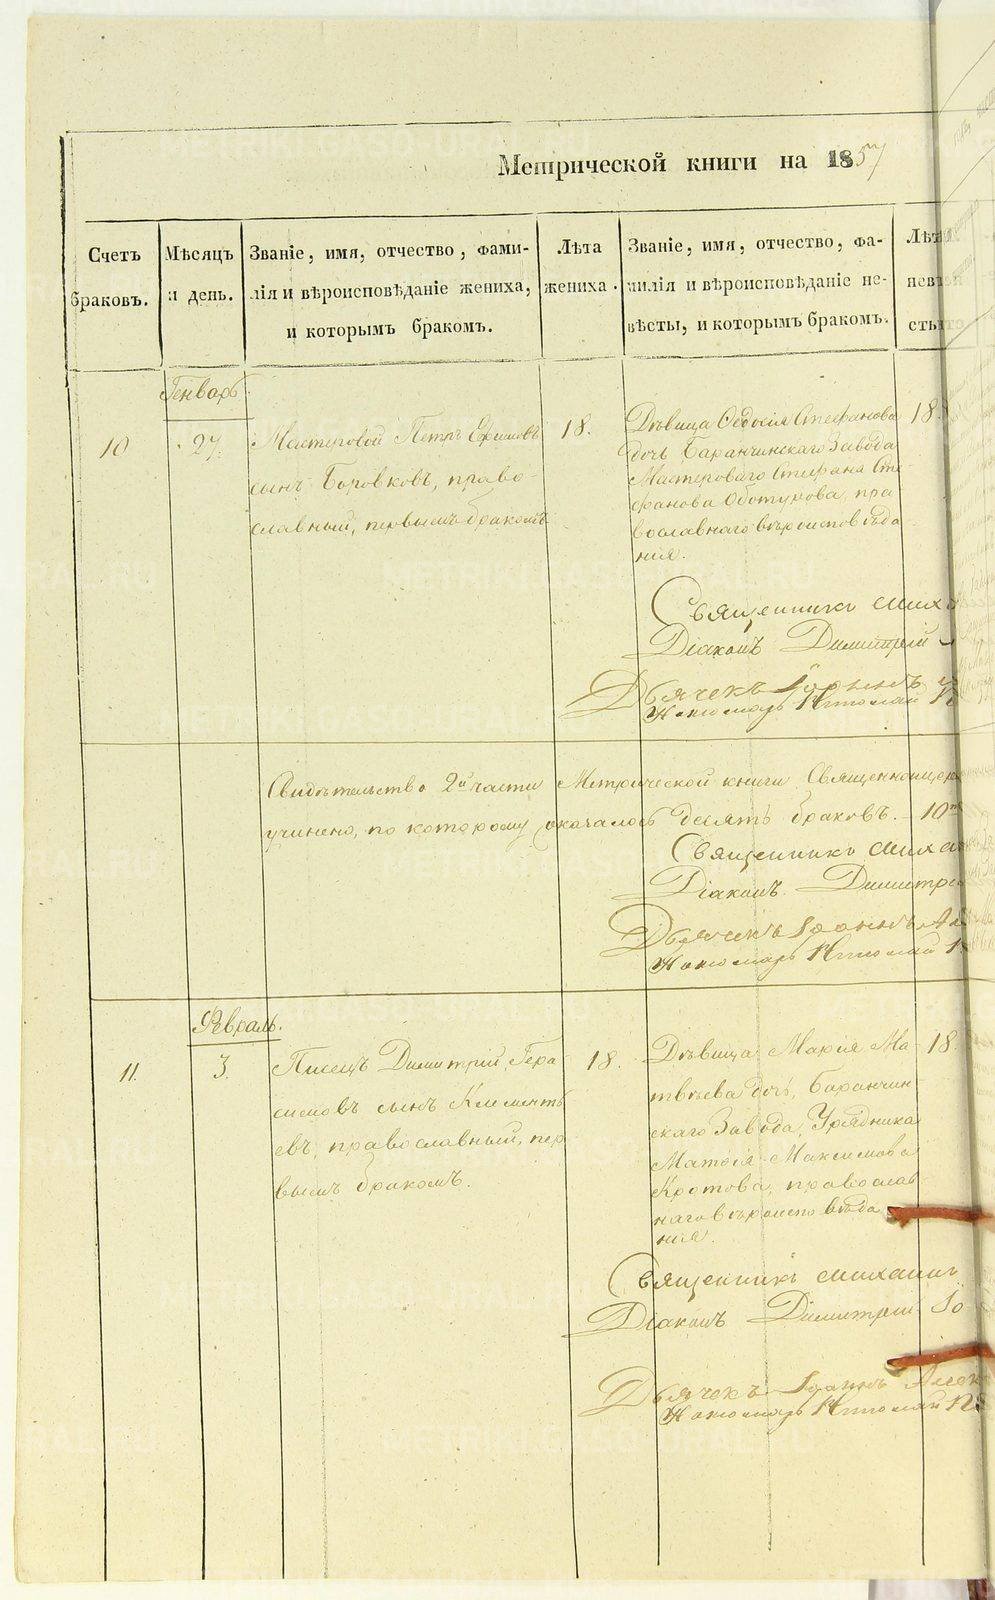 Метрической книги на 1857
Счетъ
браковъ.
Мѣсяцъ
и день.
Званіе, имя, отчество, фами-
лія и вѣроисповѣданіе жениха,
и которымъ бракомъ.
Лѣта
жениха.
Званіе, имя, отчество, фа-
милія и вѣроисповѣданіе не-
вѣсты, и которымъ бракомъ.
Лѣта
невѣ
сты
Генварь
10
27.
Мастеровой Петръ Ефимовъ
сынъ Боровковъ, право-
славный, первымъ бракомъ
18.
Дѣвица Ѳедосія Стефанова
дочь Баранчинскаго Завода
Мастероваго Стефана Сте-
фанова Оботурова, пра
вославнаго вѣроисповѣда
нія.
18.
Священникъ Мих
Діаконъ Димитрій
Дьячекъ Іоаннъ
Пономарь Николай
Свидѣтельство 2й части Метрической книги Священноцерк
учинено, по которому оказалось десять браковъ. - 10ть
Священникъ Миха
Діаконъ Димитрі
Дьячекъ Іоаннъ Ал
Пономарь Николай
Февраль.
11.
3.
Писецъ Димитрій Гера-
симовъ сынъ Клементь
евъ, православный, пер
вымъ бракомъ.
18.
Дѣвица Марія Ма-
твѣева дочь, Баранчин-
скаго Завода, Урядника
Матѳія Максимова
Кротова, православ-
наго вѣроисповѣда
нія.
18.
Священникъ Михаилъ
Діаконъ Димитрій Іо
Дьячекъ Іоаннъ Алек
Пономарь Николай
METRIKI.GASO-URAL.RU